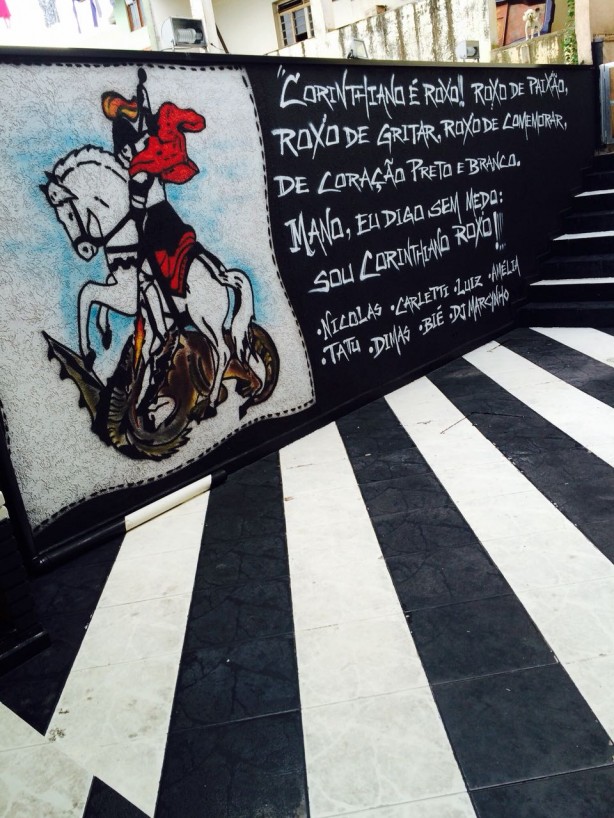 "CORINTHIANO É ROXO!! ROXO DE PAIXÃO,
ROXO DE GRITAR, ROXO DE COMEMORAR,
DE CORAÇÃO PRETO E BRANCO.
MANO, EU DIGO SEM MEDO:
SOU CORINTHIANO ROXO!!"
•NICOLAS •CARLETTI •LUIZ •AMÉLIA
•TATU •DIMAS •BIÉ •DJ MARCINHO